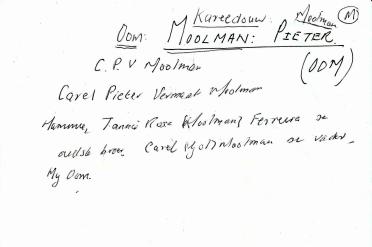 Kareedouw. Moolman (M)
Oom: MOOLMAN: PIETER.
C.P.V Moolman (OOM)
Carel Pieter Vermaak Moolman
Mamma, Tannie Rosa (Moolman) Ferreira se
oudste broer, Carel Moolman se vader.
My Oom.